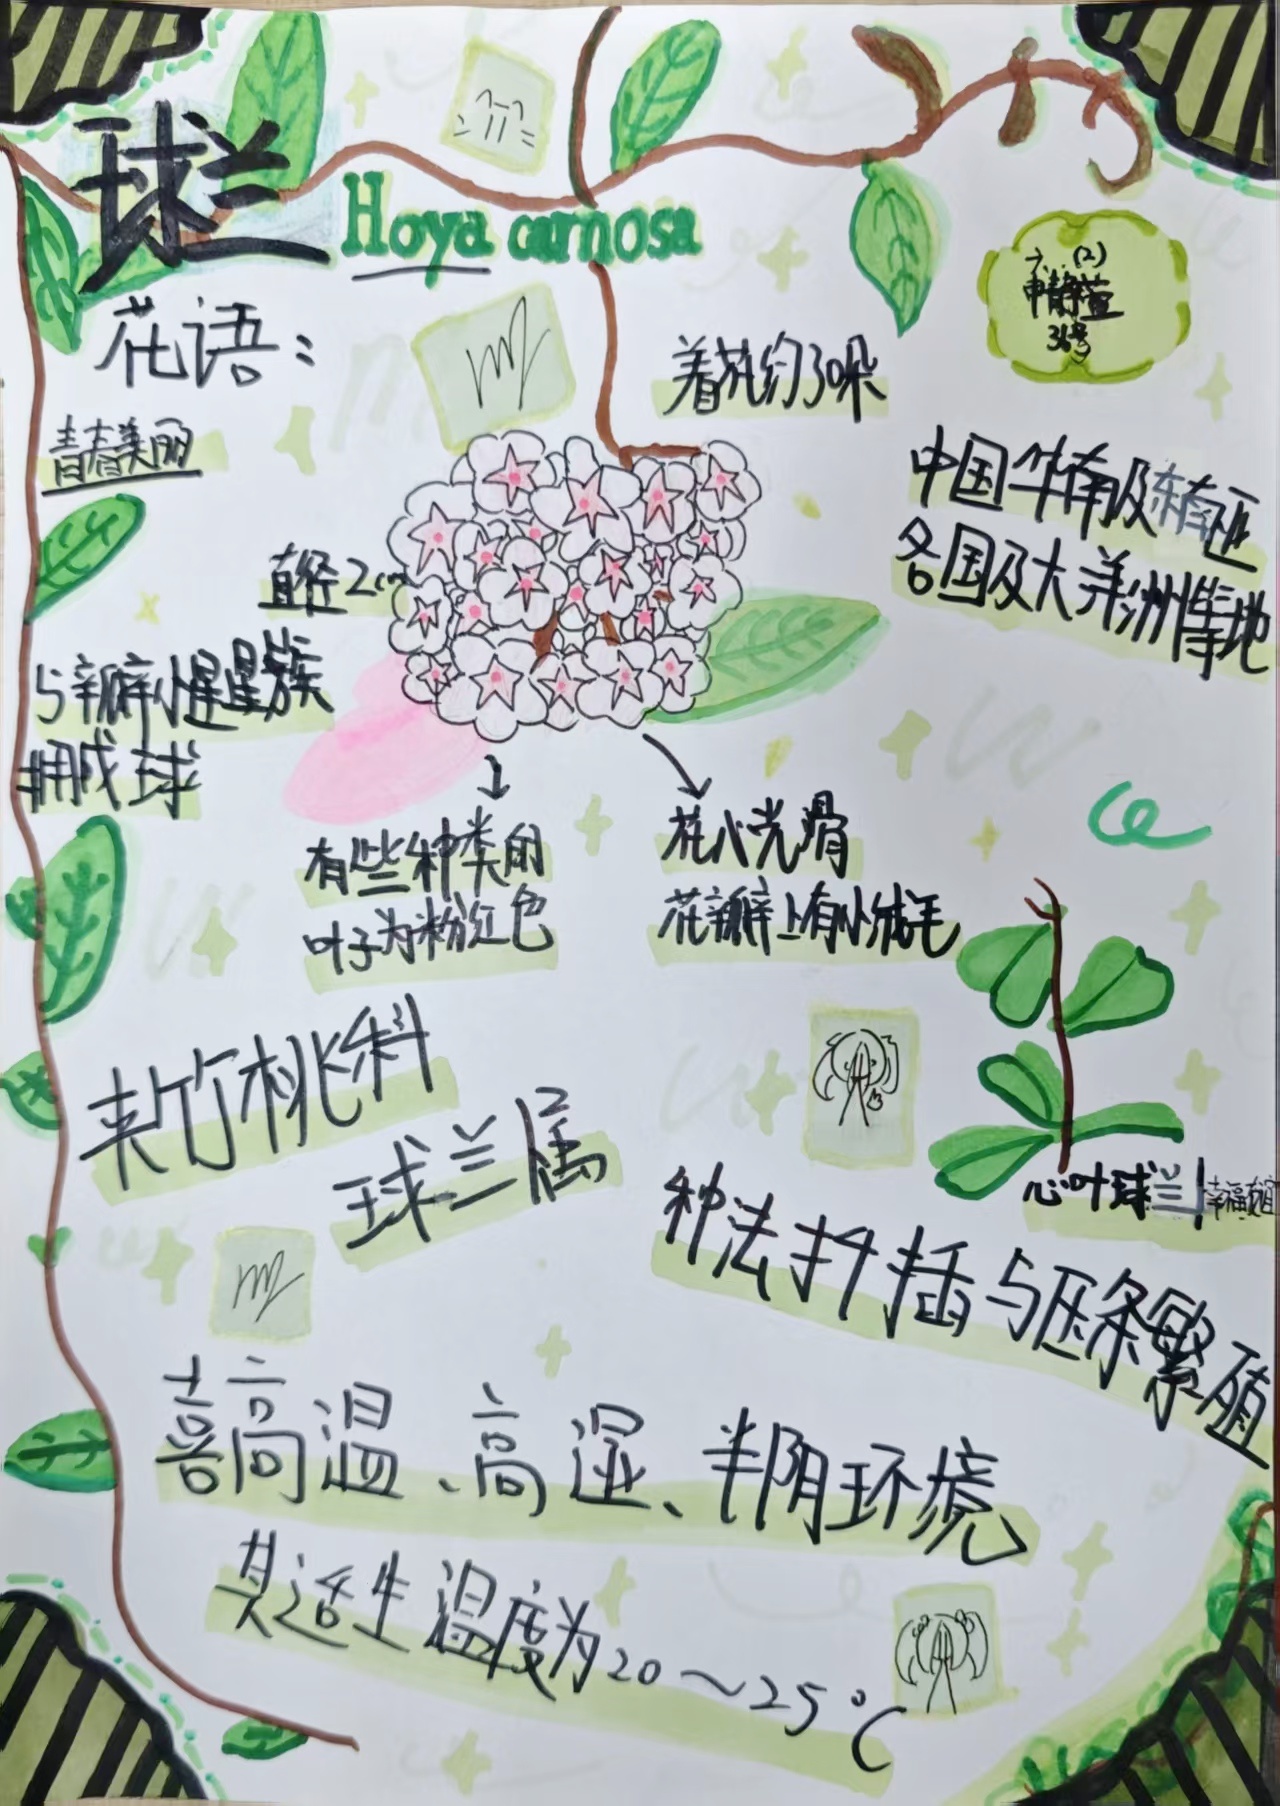 球兰
Hoya carnosa
六(2)
申静萱
36号
花语：
青春美丽
着花约30朵
中国华南及东南亚
各国及大洋洲等地
直径2cm
与瓣小星星簇
拥成球
有些种类的
叶子为粉红色
花心光滑
花瓣上有小绒毛
夹竹桃科
球兰属
心叶球兰
种法扦插与压条繁殖
喜高温、高湿、半阴环境
其适生温度为20～25℃